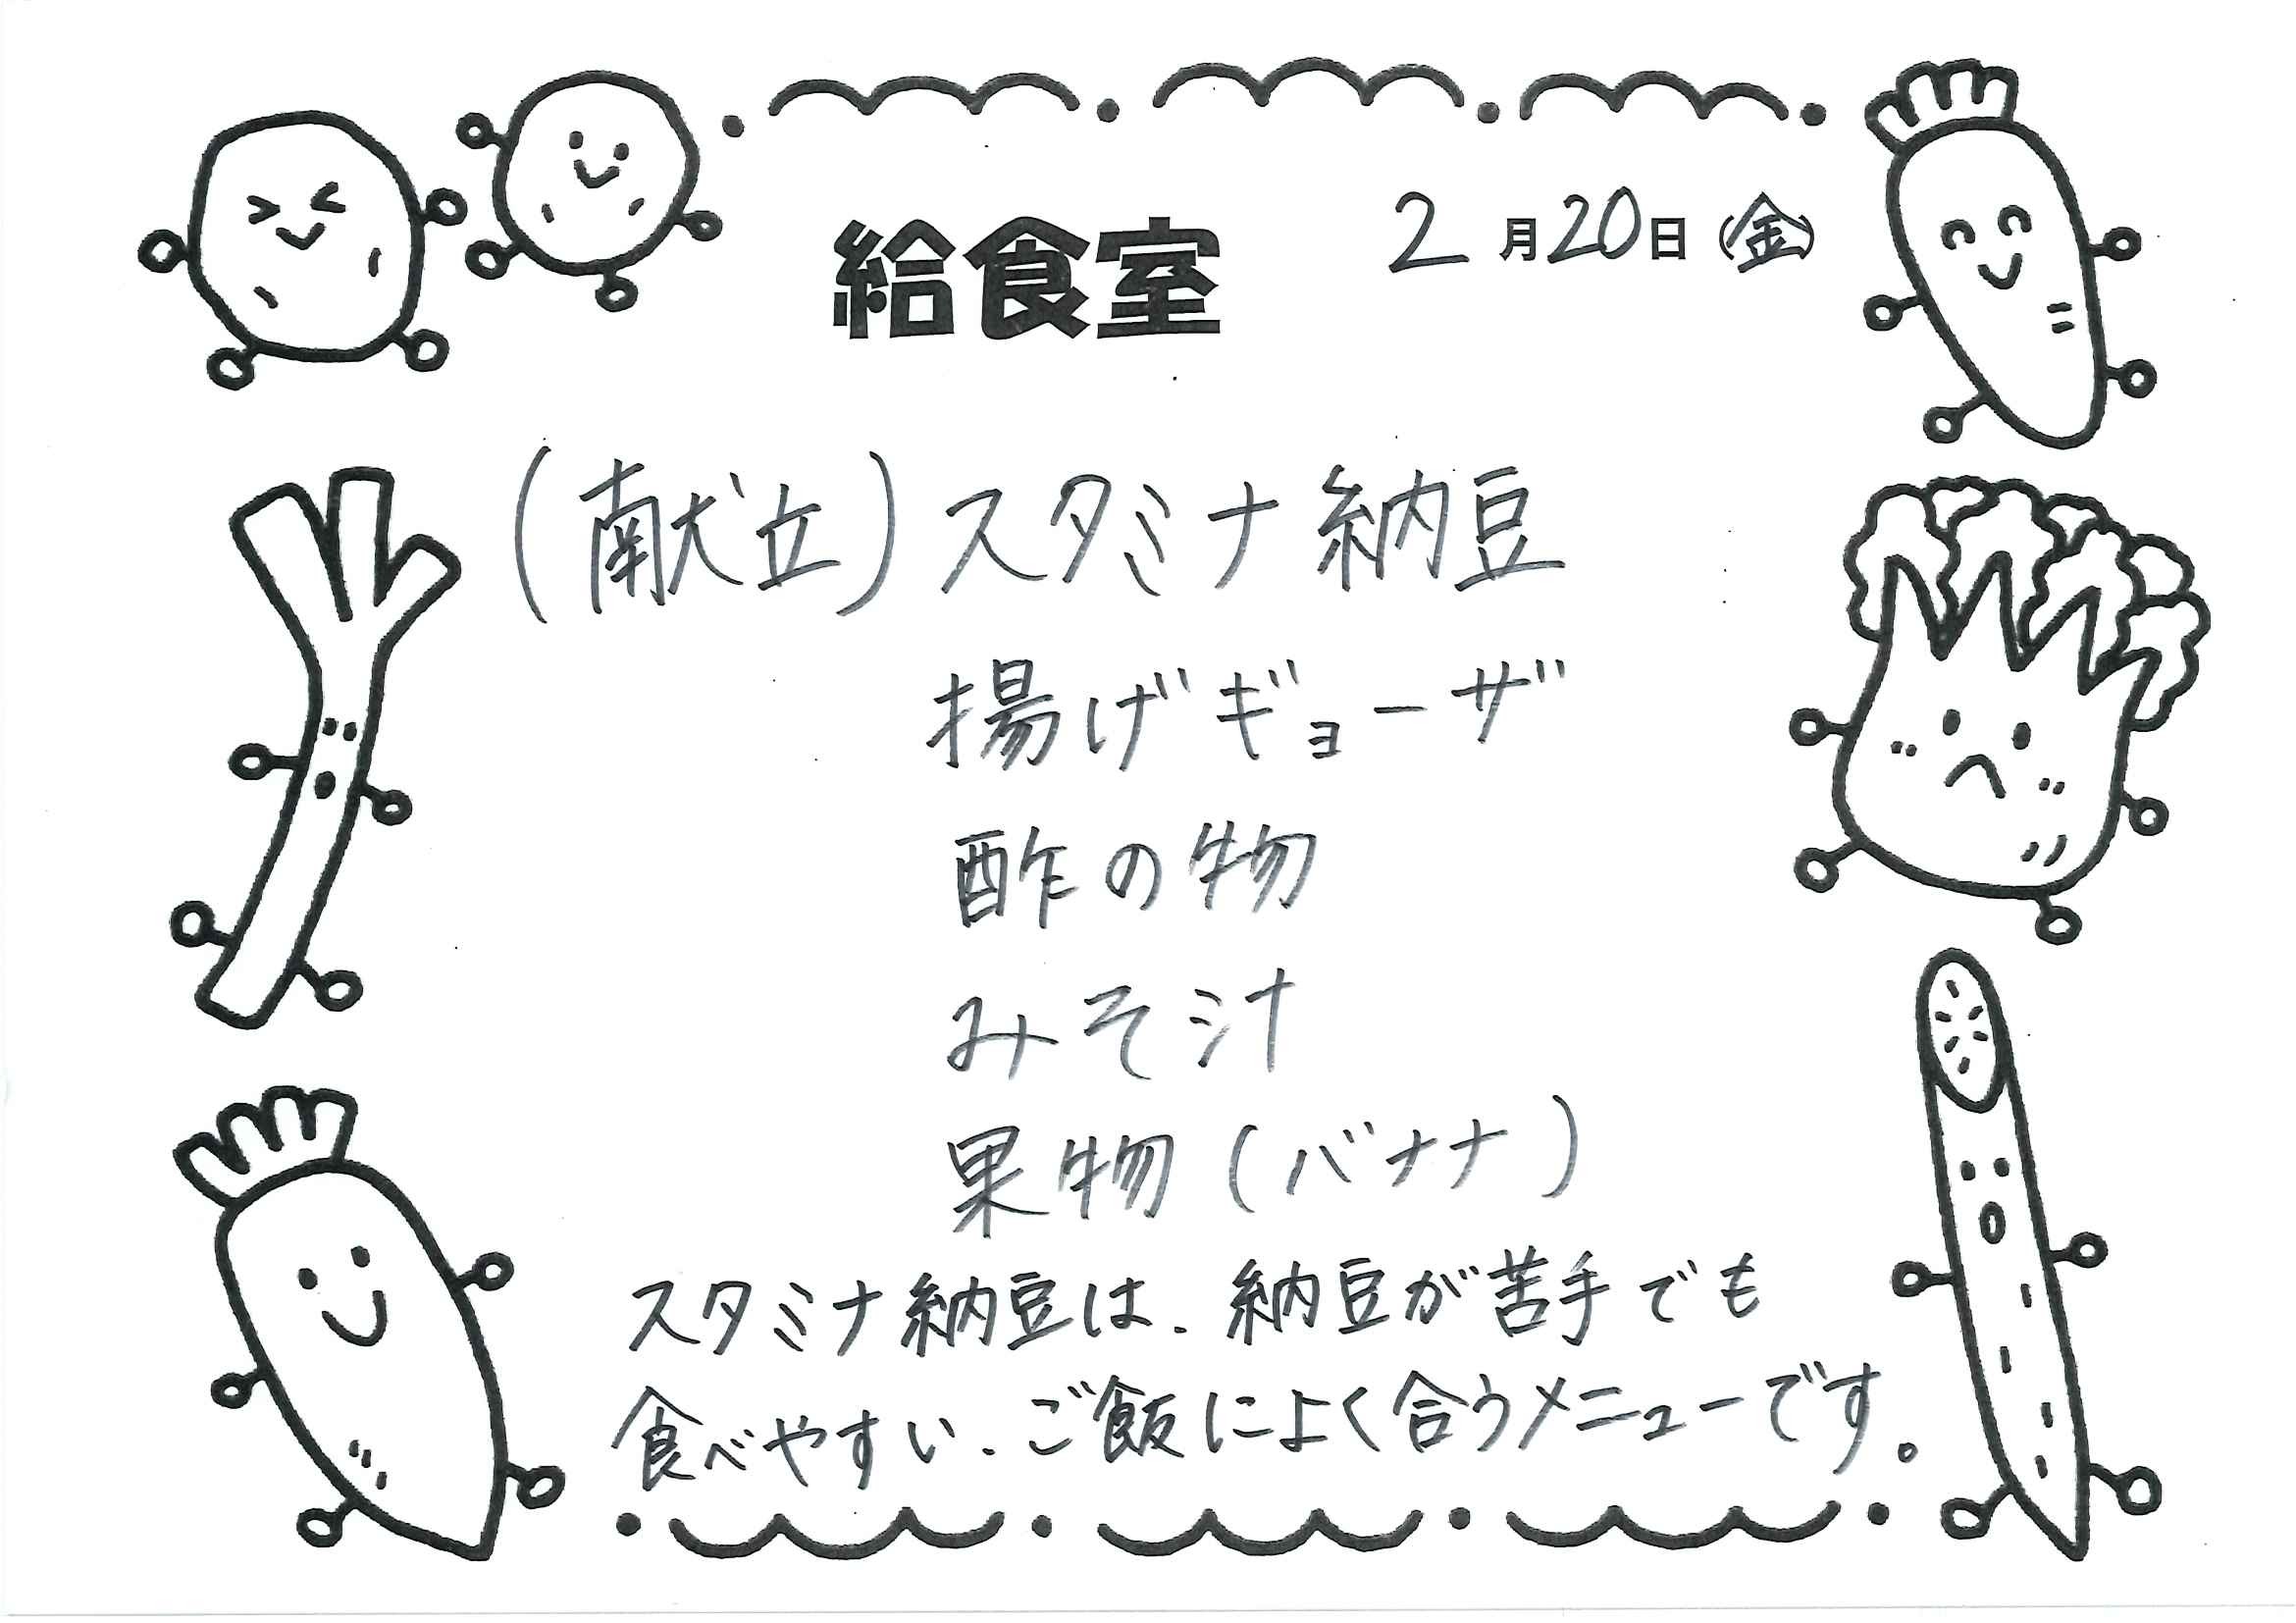 給食室
2月20日(金)
(献立)スタミナ納豆
揚げギョーザ
酢の物
みそ汁
果物(バナナ)
スタミナ納豆は、納豆が苦手でも
食べやすい、ご飯によく合うメニューです。